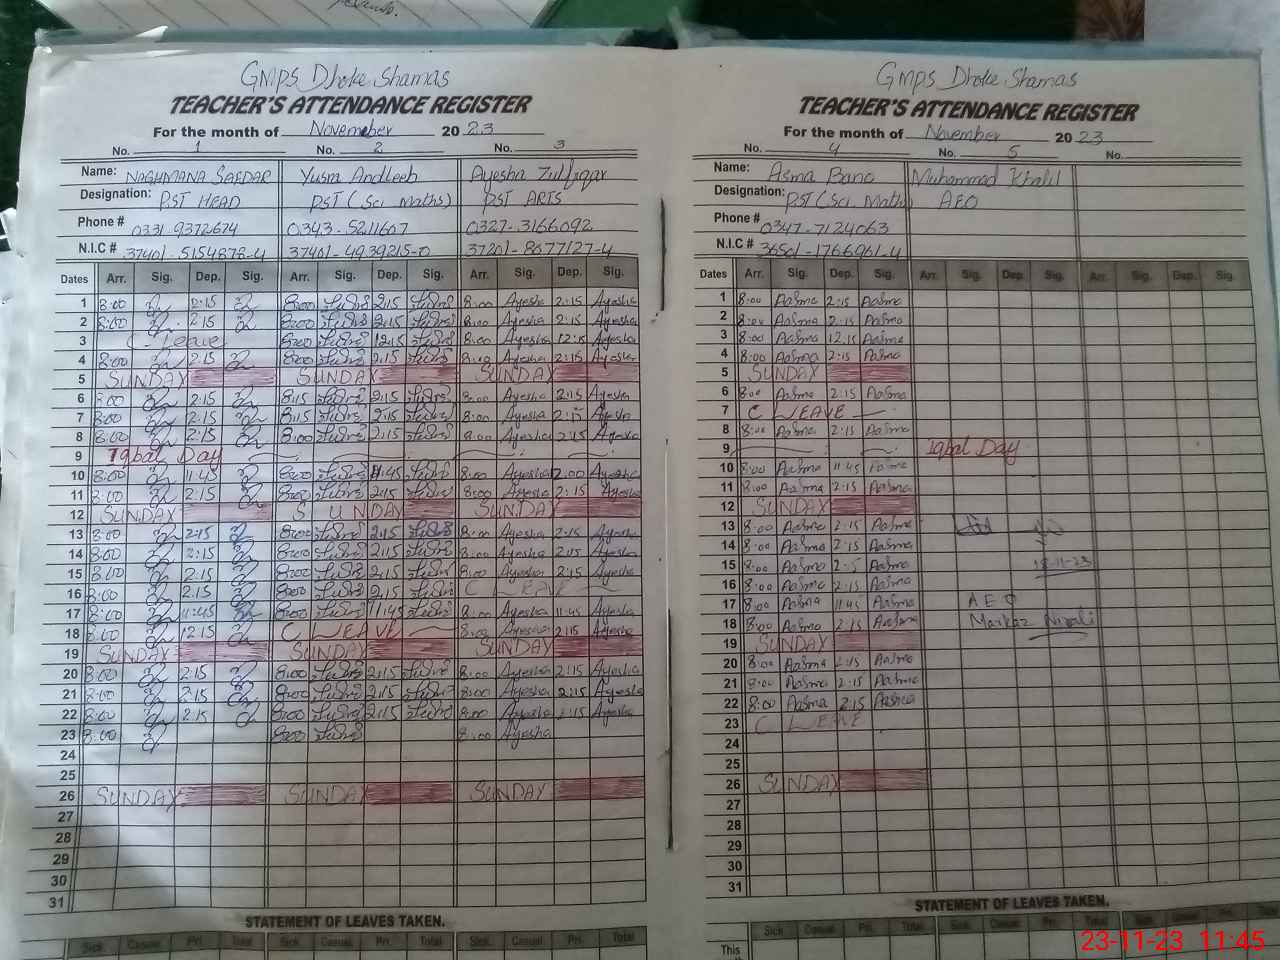 GMPS Dhoke Shamas
TEACHER'S ATTENDANCE REGISTER
For the month of November 2023
No. 1 No. 2 No. 3
Name: NAGHMANA SAFDAR Yusra Andleeb Ayesha Zulfiqar
Designation: PST HEAD PST (Sci Maths) PST ARTS
Phone # 0331-9372674 0343-5211607 0327-3166092
N.I.C # 37401-5154878-4 37401-4939215-0 37201-8077127-4
Dates Arr. Sig. Dep. Sig. Arr. Sig. Dep. Sig. Arr. Sig. Dep. Sig.
1 8:00 2:15 8:00 2:15 8:00 Ayesha 2:15 Ayesha
2 8:00 2:15 8:00 2:15 8:00 Ayesha 2:15 Ayesha
3 C-Leave 8:00 12:15 8:00 Ayesha 12:15 Ayesha
4 8:00 2:15 8:00 2:15 8:00 Ayesha 2:15 Ayesha
5 SUNDAY SUNDAY SUNDAY
6 8:00 2:15 8:15 2:15 8:00 Ayesha 2:15 Ayesha
7 8:00 2:15 8:15 2:15 8:00 Ayesha 2:15 Ayesha
8 8:00 2:15 8:00 2:15 8:00 Ayesha 2:15 Ayesha
9 Iqbal Day
10 8:00 11:45 8:00 11:45 8:00 Ayesha 12:00 Ayesha
11 8:00 2:15 8:00 2:15 8:00 Ayesha 2:15 Ayesha
12 SUNDAY SUNDAY SUNDAY
13 8:00 2:15 8:00 2:15 8:00 Ayesha 2:15 Ayesha
14 8:00 2:15 8:00 2:15 8:00 Ayesha 2:15 Ayesha
15 8:00 2:15 8:00 2:15 8:00 Ayesha 2:15 Ayesha
16 8:00 2:15 8:00 2:15 C LEAVE
17 8:00 11:45 8:00 11:45 8:00 Ayesha 11:45 Ayesha
18 8:00 12:15 C LEAVE 8:00 Ayesha 2:15 Ayesha
19 SUNDAY SUNDAY SUNDAY
20 8:00 2:15 8:00 2:15 8:00 Ayesha 2:15 Ayesha
21 8:00 2:15 8:00 2:15 8:00 Ayesha 2:15 Ayesha
22 8:00 2:15 8:00 2:15 8:00 Ayesha 2:15 Ayesha
23 8:00 8:00 8:00 Ayesha
24
25
26 SUNDAY SUNDAY SUNDAY
27
28
29
30
31
STATEMENT OF LEAVES TAKEN.
Sick Casual Pri. Total Sick. Casual. Pri. Total Sick. Casual Pri. Total
GMPS Dhoke Shamas
TEACHER'S ATTENDANCE REGISTER
For the month of November 2023
No. 4 No. 5 No.
Name: Asma Bano Muhammad Khalil
Designation: PST (Sci Math) AEO
Phone # 0347-7124063
N.I.C # 36501-1766961-4
Dates Arr. Sig. Dep. Sig. Arr. Sig. Dep. Sig. Arr. Sig. Dep. Sig.
1 8:00 Aasma 2:15 Aasma
2 8:00 Aasma 2:15 Aasma
3 8:00 Aasma 12:15 Aasma
4 8:00 Aasma 2:15 Aasma
5 SUNDAY
6 8:00 Aasma 2:15 Aasma
7 C LEAVE
8 8:00 Aasma 2:15 Aasma
9 Iqbal Day
10 8:00 Aasma 11:45 Aasma
11 8:00 Aasma 2:15 Aasma
12 SUNDAY
13 8:00 Aasma 2:15 Aasma
14 8:00 Aasma 2:15 Aasma
15 8:00 Aasma 2:15 Aasma 18-11-23
16 8:00 Aasma 2:15 Aasma
17 8:00 Aasma 11:45 Aasma AEO
18 8:00 Aasma 2:15 Aasma Markaz
19 SUNDAY
20 8:00 Aasma 2:15 Aasma
21 8:00 Aasma 2:15 Aasma
22 8:00 Aasma 2:15 Aasma
23 C LEAVE
24
25
26 SUNDAY
27
28
29
30
31
STATEMENT OF LEAVES TAKEN.
Sick Casual Pri. Total Sick. Casual Pri. Total Sick. Casual Pri. Total
This
23-11-23 11:45